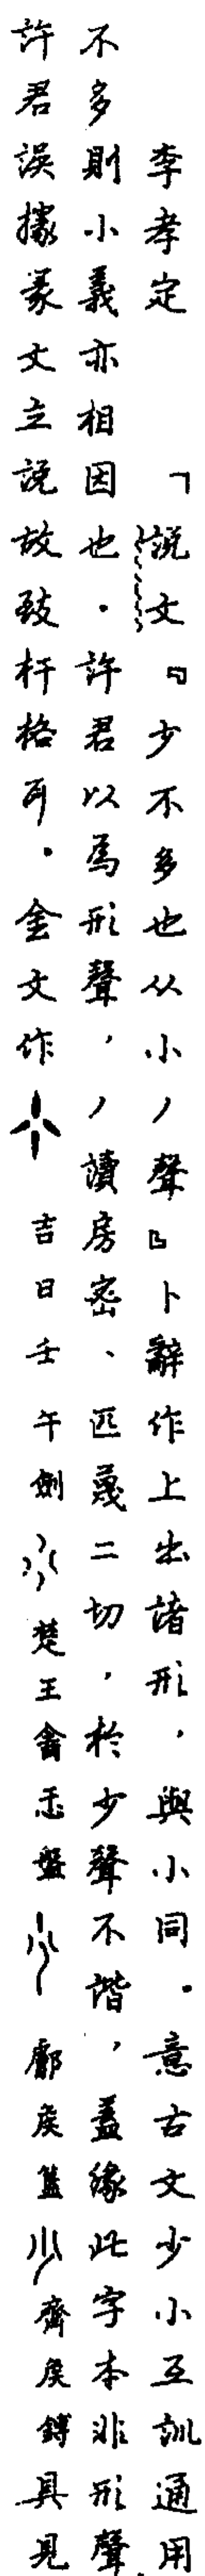 李孝定 「說文『少不多也从小丿聲』卜辭作上出諸形，與小同．意古文少小互訓通用
不多則小義亦相因也．許君以為形聲，丿讀房密、匹蔑二切，於少聲不諧，蓋緣此字本非形聲
許君誤據篆文立說故致杆格耳．金文作 吉日壬午劍 楚王酓忎盤 郾侯簋 齊侯鎛 具見